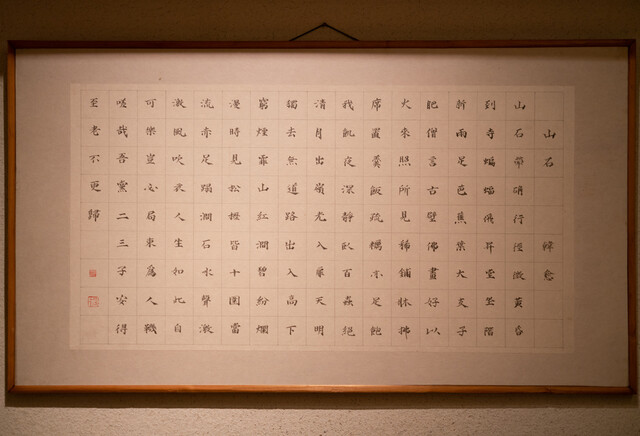 山石 韓愈
山石犖确行徑微黃昏
到寺蝙蝠飛昇堂坐階
新雨足芭蕉葉大支子
肥僧言古壁佛畫好以
火來照所見稀鋪牀拂
席置羹飯疏糲亦足飽
我飢夜深靜臥百蟲絕
清月出嶺光入扉天明
獨去無道路出入高下
窮煙霏山紅澗碧紛爛
漫時見松櫪皆十圍當
流赤足蹋澗石水聲激
激風吹衣人生如此自
可樂豈必局束爲人鞿
嗟哉吾黨二三子安得
至老不更歸